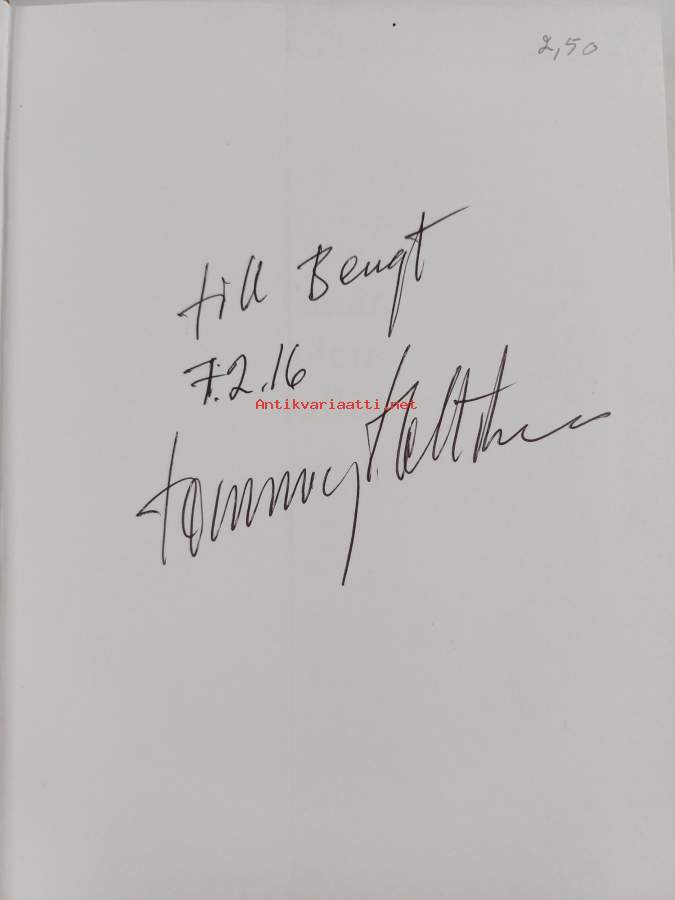 2,50
till Bengt
7.2.16
Antikvariaatti.net
Tommy